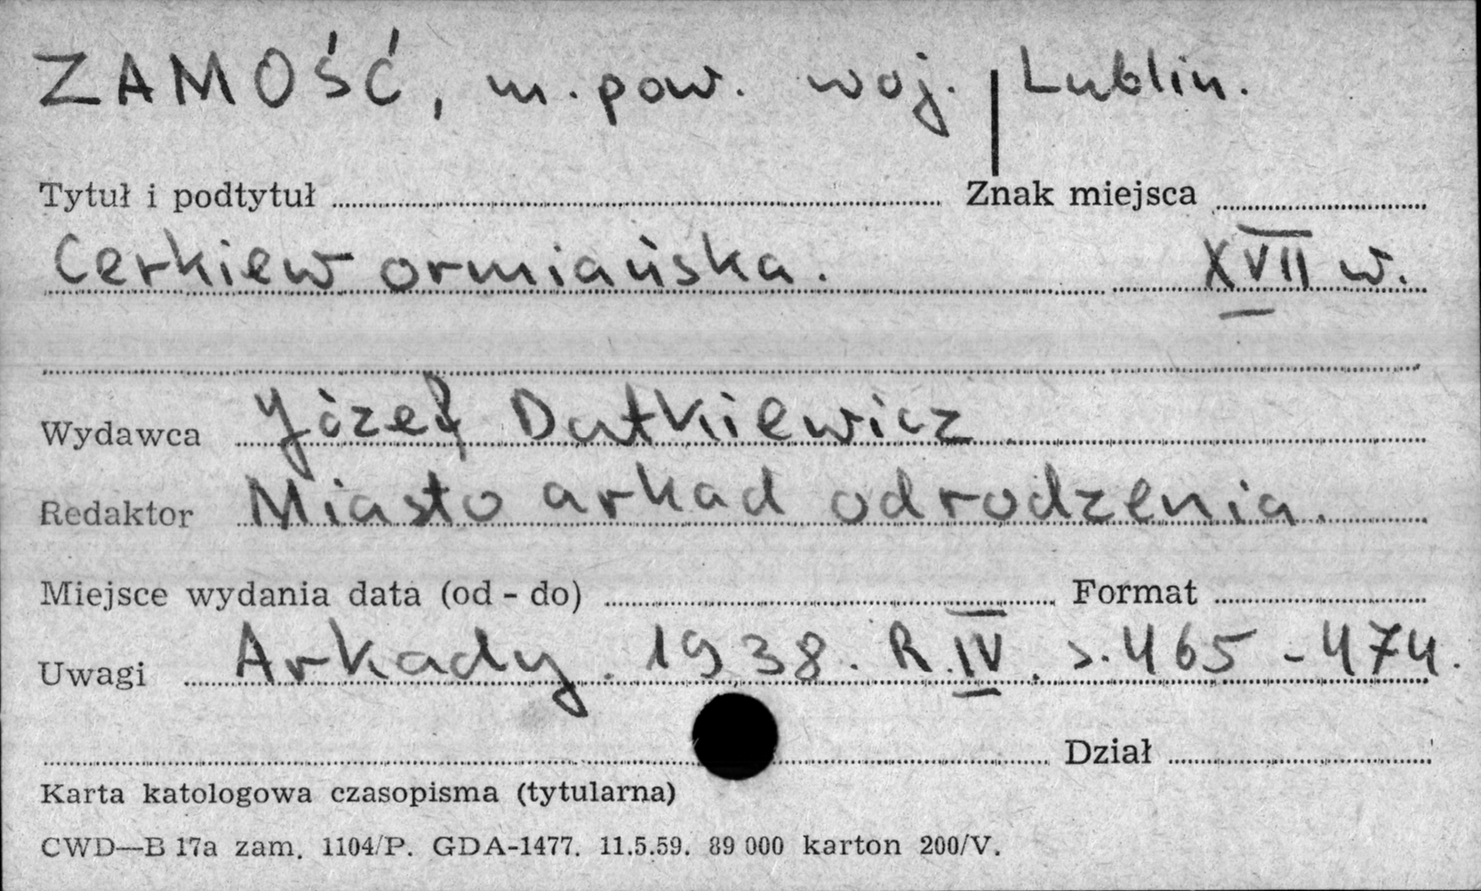 ZAMOŚĆ, m. pow. woj. Lublin.
Tytuł i podtytuł Znak miejsca
Cerkiew ormiańska. XVII w.
Wydawca Józef Dutkiewicz
Redaktor Miasto arkad odrodzenia.
Miejsce wydania data (od - do) Format
Uwagi Arkady. 1938. R. IV. s. 465 - 474.
Dział
Karta katologowa czasopisma (tytularna)
CWD—B 17a zam. 1104/P. GDA-1477. 11.5.59. 89 000 karton 200/V.